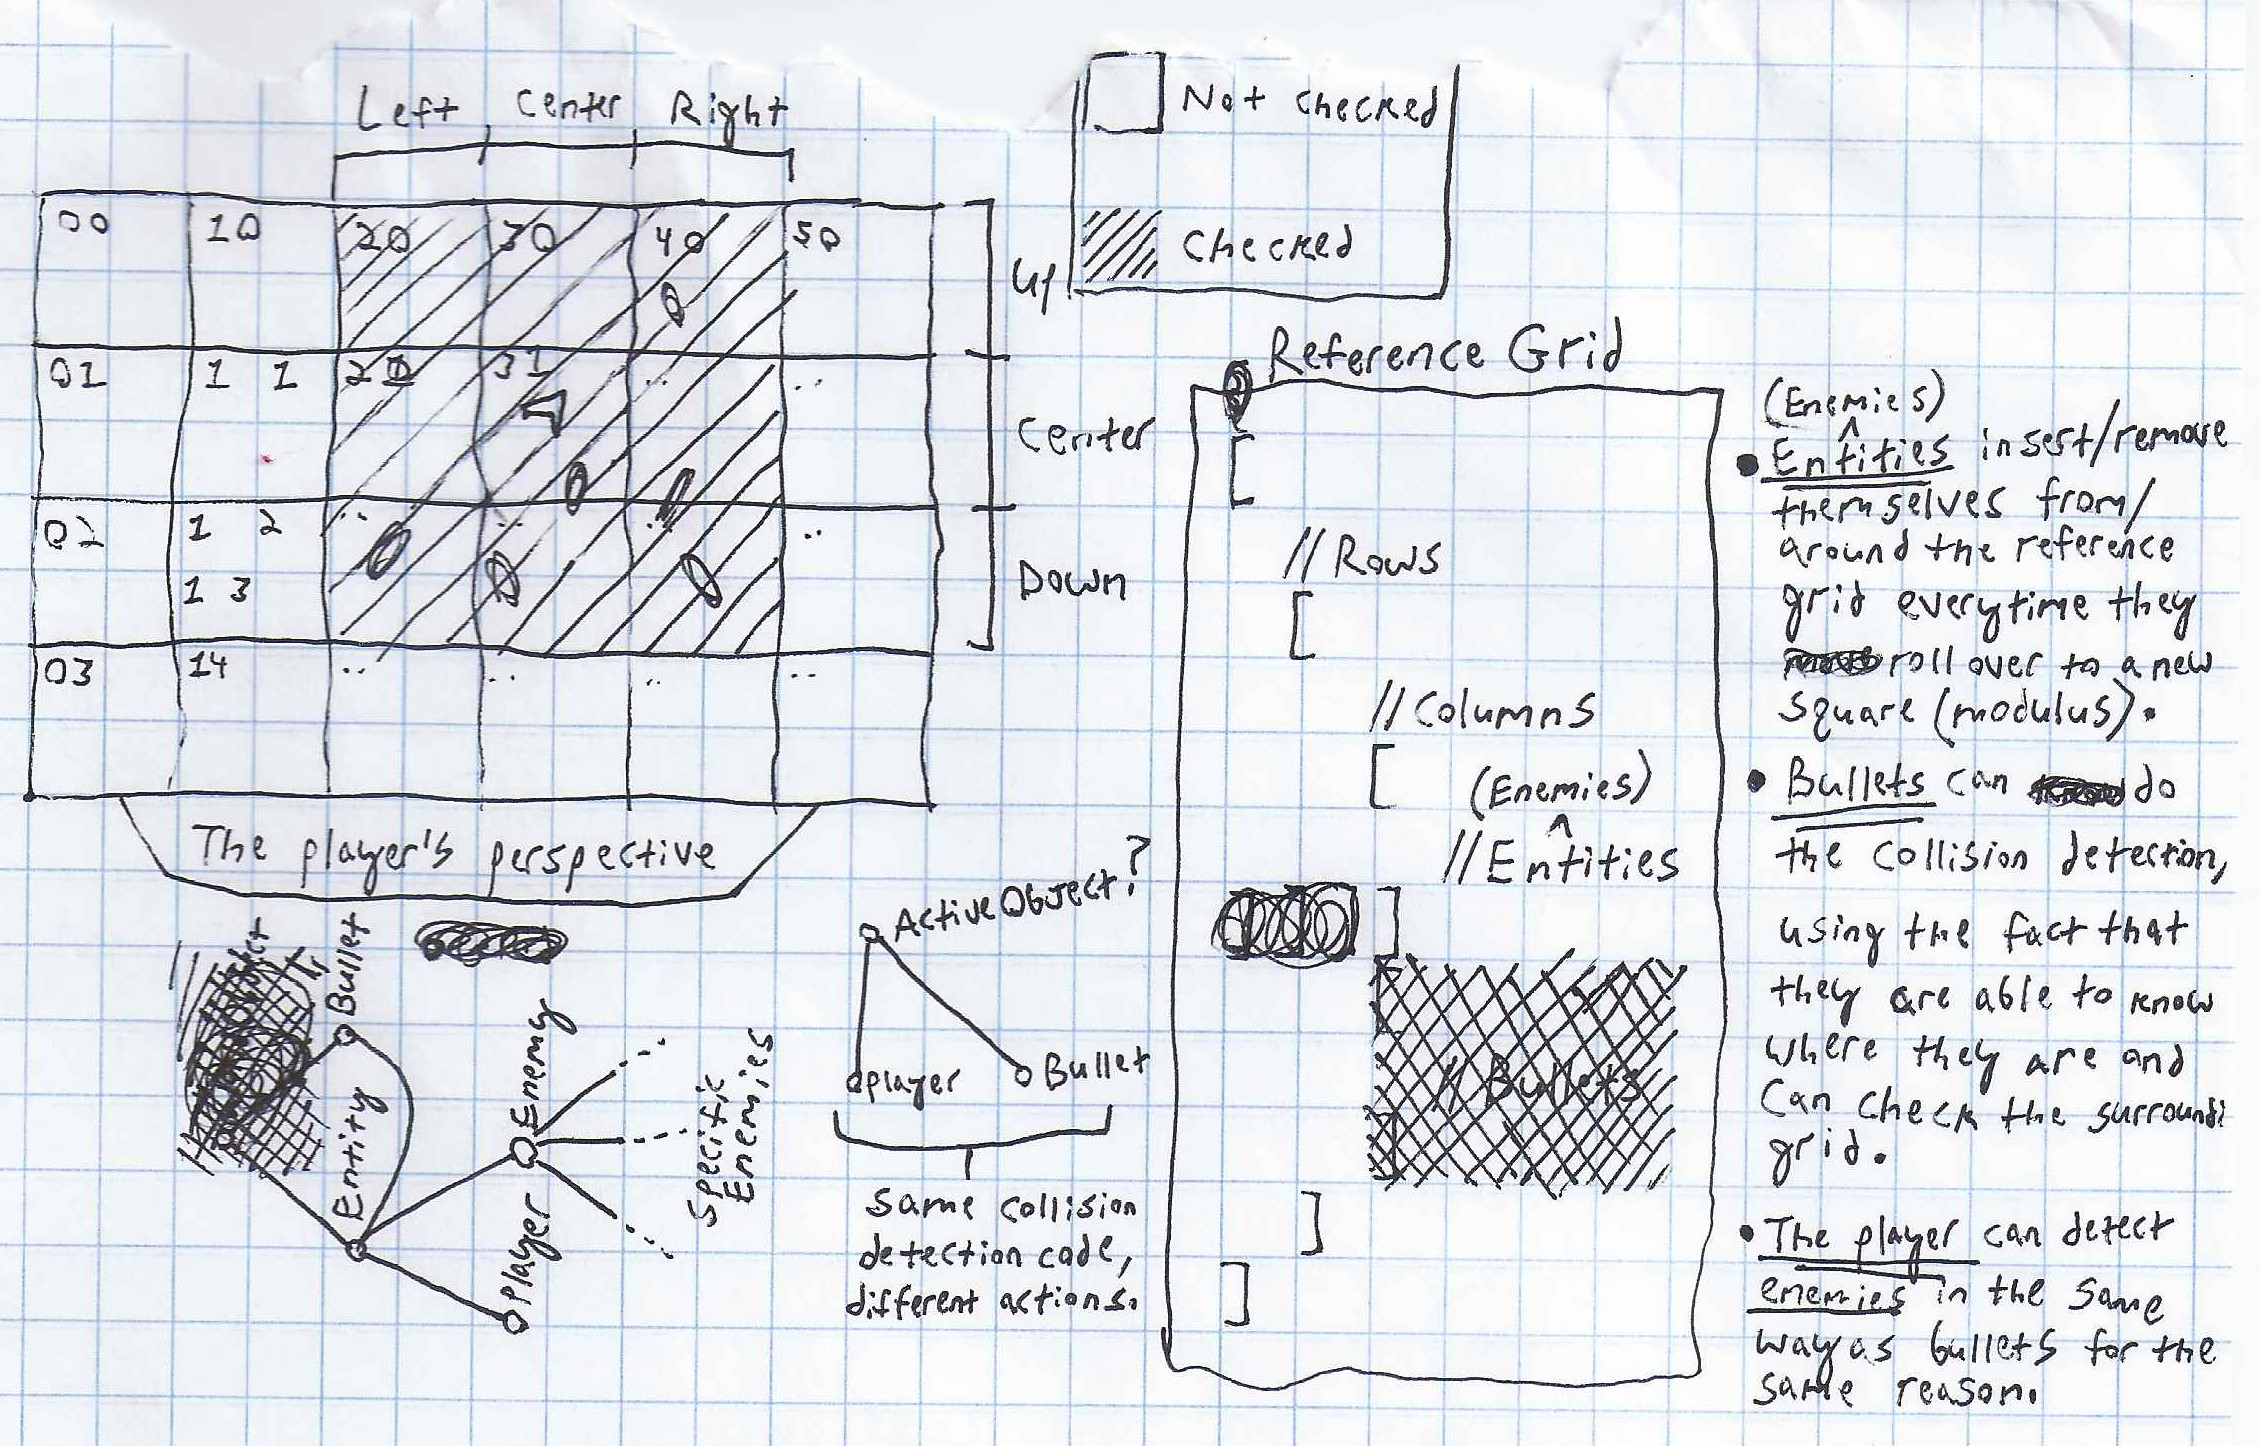 Left Center Right
Not checked
Checked
00 10 20 30 40 50
Up
01 1 1 20 31 .. ..
Center
02 1 2 .. .. .. ..
1 3
Down
03 14 .. .. .. ..
The player's perspective
Reference Grid
[
//Rows
[
//Columns
[ (Enemies)
^
//Entities
]
//Bullets
]
]
(Enemies)
^
• Entities insert/remove
themselves from/
around the reference
grid everytime they
roll over to a new
square (modulus).
• Bullets can do
the collision detection,
using the fact that
they are able to know
where they are and
can check the surroundi
grid.
• The player can detect
enemies in the same
way as bullets for the
same reason.
Bullet
Entity
Enemy
Player
Specific
Enemies
ActiveObject?
player
Bullet
same collision
detection code,
different actions.